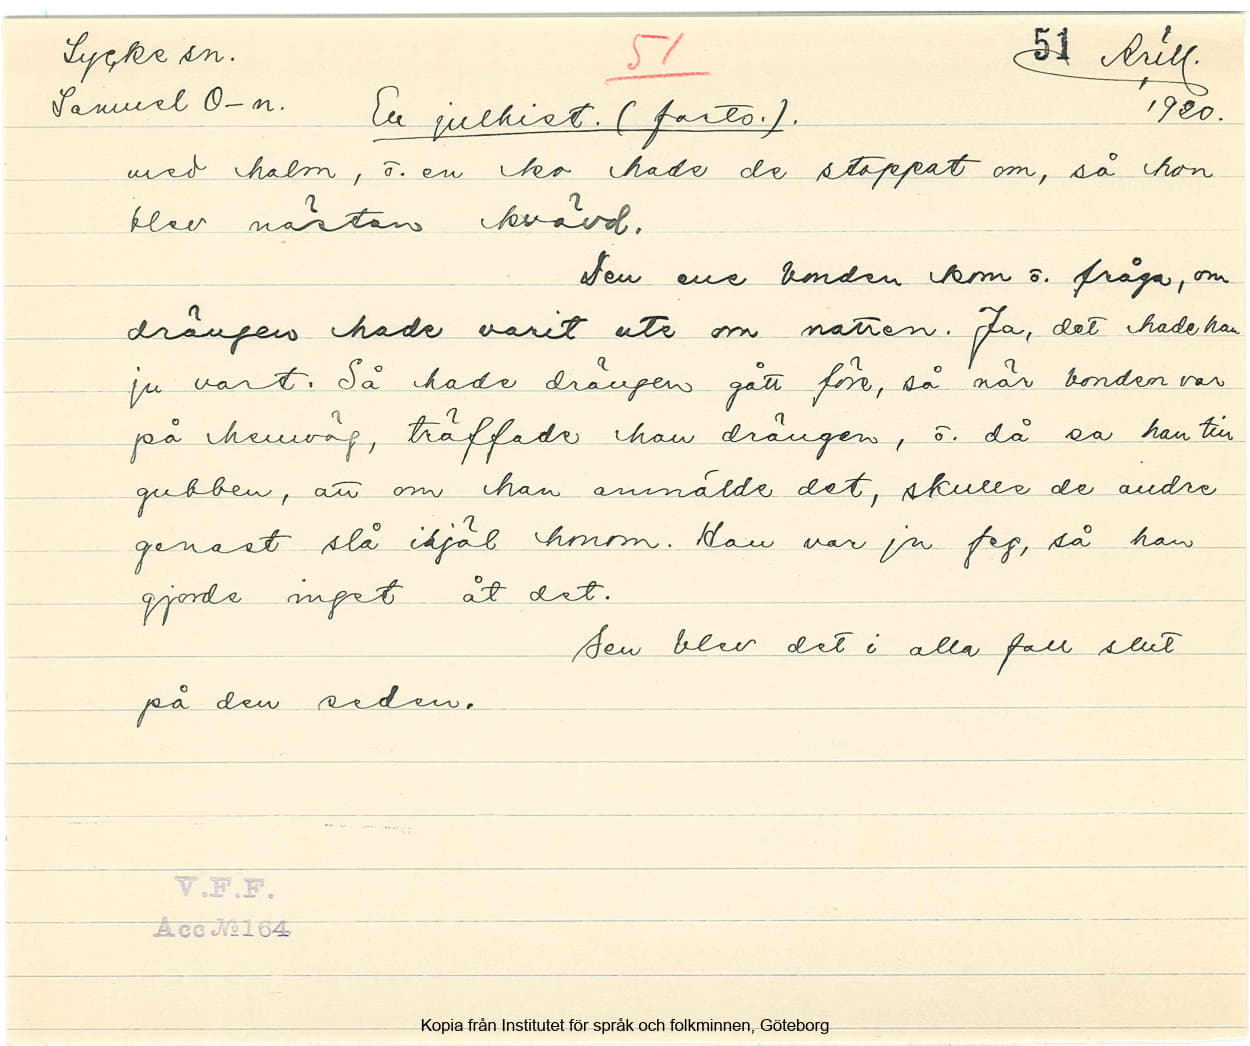 Lycke sn.
51
51 Krill.
Samuel O-n.
En julhist. (forts.).
1920.
med halm, o. en ko hade de stoppat om, så hon
blev nästan kvävd.
Den ene bonden kom o. fråga, om
drängen hade varit ute om natten. Ja, det hade han
ju vart. Så hade drängen gått före, så när bonden var
på hemväg, träffade han drängen, o. då sa han till
gubben, att om han anmälde det, skulle de andre
genast slå ihjäl honom. Han var ju feg, så han
gjorde inget åt det.
Sen blev det i alla fall slut
på den seden.
V.F.F.
Acc №164
Kopia från Institutet för språk och folkminnen, Göteborg